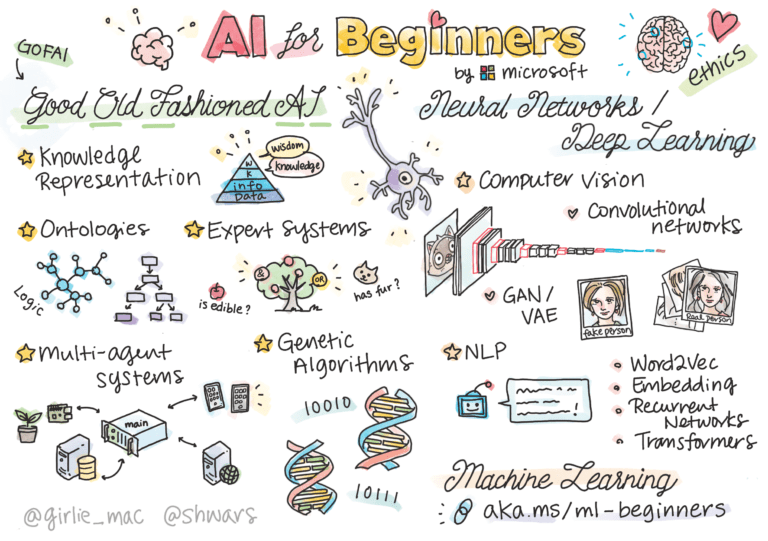 AI for Beginners
by microsoft
ethics
GOFAI
Good Old Fashioned AI
Knowledge
Representation
wisdom
knowledge
W
K
info
Data
Ontologies
Logic
Expert Systems
is edible?
&
OR
has fur?
Multi-agent
systems
main
Genetic
Algorithms
10010
10111
Neural Networks /
Deep Learning
Computer Vision
Convolutional
networks
GAN/
VAE
fake person
Real person
NLP
Word2Vec
Embedding
Recurrent
Networks
Transformers
Machine Learning
aka.ms/ml-beginners
@girlie_mac @shwars